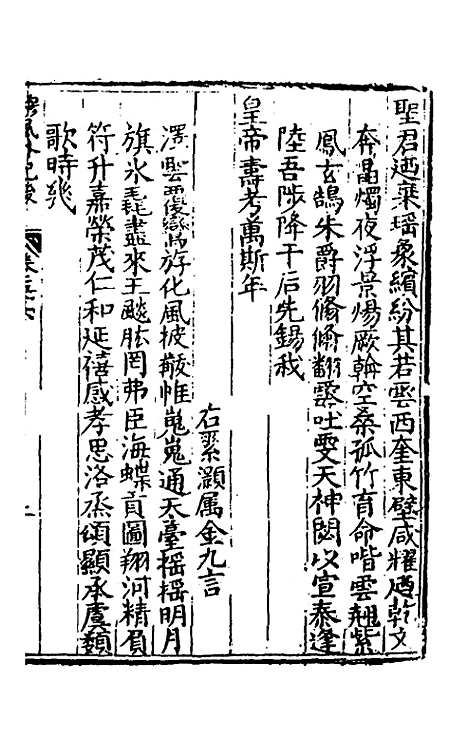 聖君迺葉瑶象繽紛其若雲西奎東壁咸耀廼乾文
奔晶燭夜浮景煬厥輪空桑孤竹育命喈雲翹紫
鳳玄鵠朱爵羽翛翛翻靉吐雯天神閟以宣泰逢
陸吾陟降干后先錫我
皇帝壽考萬斯年
右纍灝属金九言
澤雲覆斿化風披敲帷嵬嵬通天臺揺揺明月
旗氷毳盡來王飈肱罔弗臣海蝶貢圖翔河精負
符升嘉榮茂仁和延禧感孝思洛烝頌顯承虞類
歌時幾